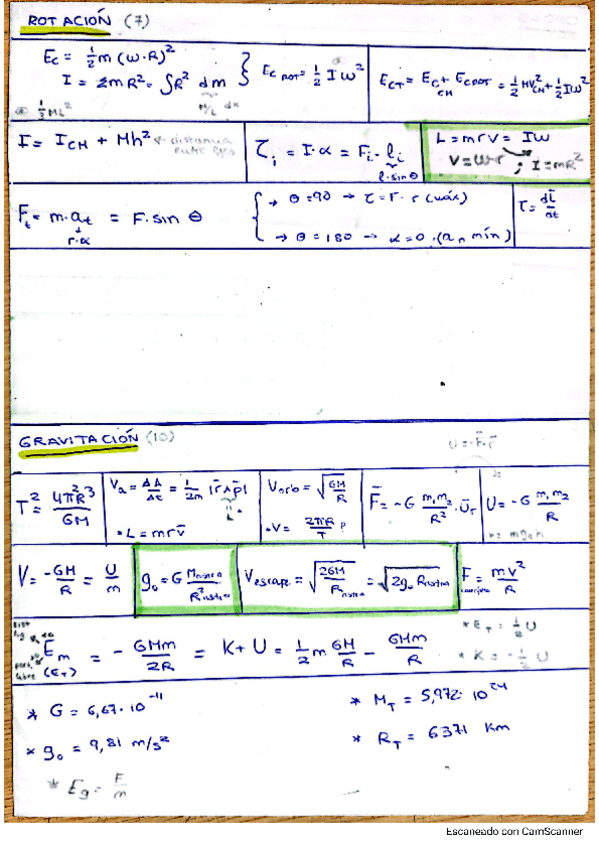 ROTACIÓN (7)
Ec = 1/2 m (ω·R)²
I = Σm R² = ∫R² dm
M/L dx
Ec ROT = 1/2 I ω²
ECT = Ec CM + Ec ROT = 1/2 MV²CM + 1/2 Iω²
1/2 ML²
I = ICM + Mh² ← distancia entre ejes
τi = I·α = Fi · li
l·sin θ
L = mrv = Iω
V = ω·r ; I = mR²
Ft = m·at = F·sin θ
r·α
→ θ = 90 → τ = F·r (máx)
→ θ = 180 → α = 0
τ = dL/dt
GRAVITACIÓN (10)
U = -F·r
T² = 4π²R³/GM
Va = ΔA/Δt = 1/2m |r∧p|
L
* L = mrv
Vorb = √GM/R
* V = 2πR/T ?
F = -G m₁m₂/R² · ur
U = -G m₁m₂/R
V = -GM/R = U/m
g₀ = G Mastro/R²astro
Vescape = √2GM/Rastro = √2g₀ Rastro
F centrípeta = mv²/R
Em = -GMm/2R = K+U = 1/2 m GM/R - GMm/R
(ET)
* ET = 1/2 U
* K = -1/2 U
* G = 6,67·10⁻¹¹
* MT = 5,972·10²⁴
* g₀ = 9,81 m/s²
* RT = 6371 Km
* Eg = F/m
Escaneado con CamScanner